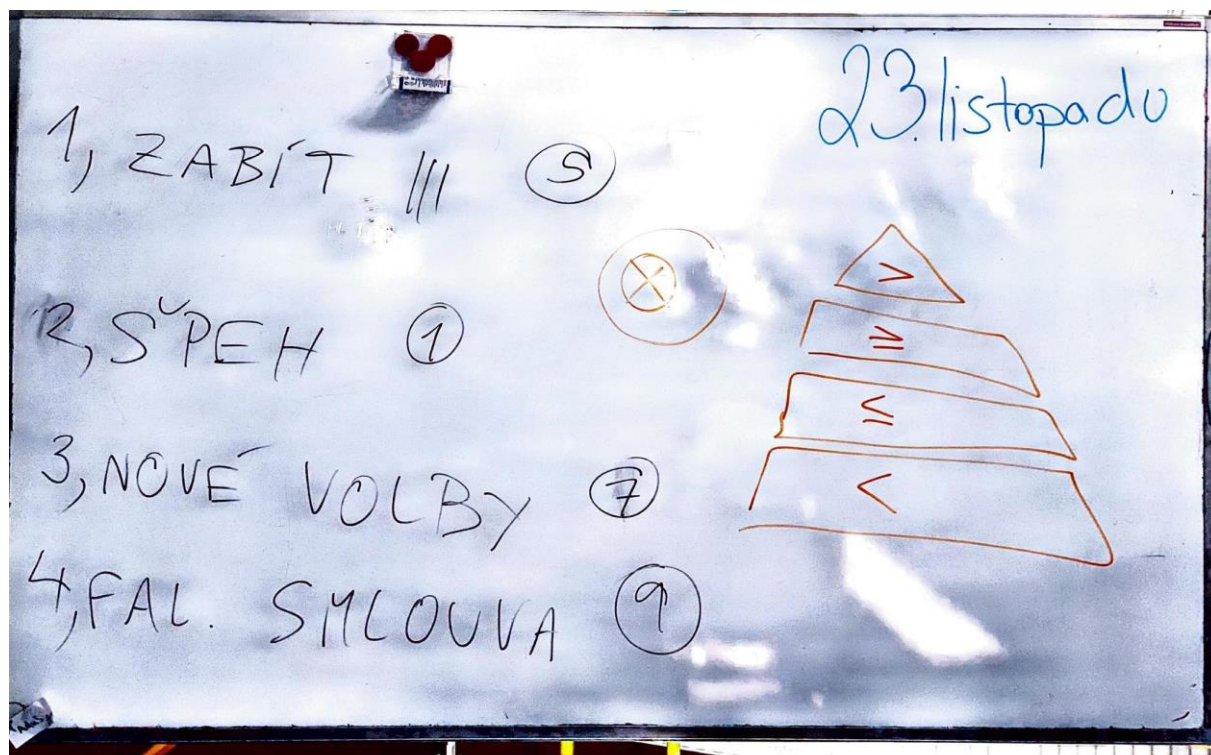 23. listopadu
1, ZABÍT ||| (5)
2, ŠPEH (1)
3, NOVÉ VOLBY (7)
4, FAL. SMLOUVA (9)
⊗
>
≥
≤
<